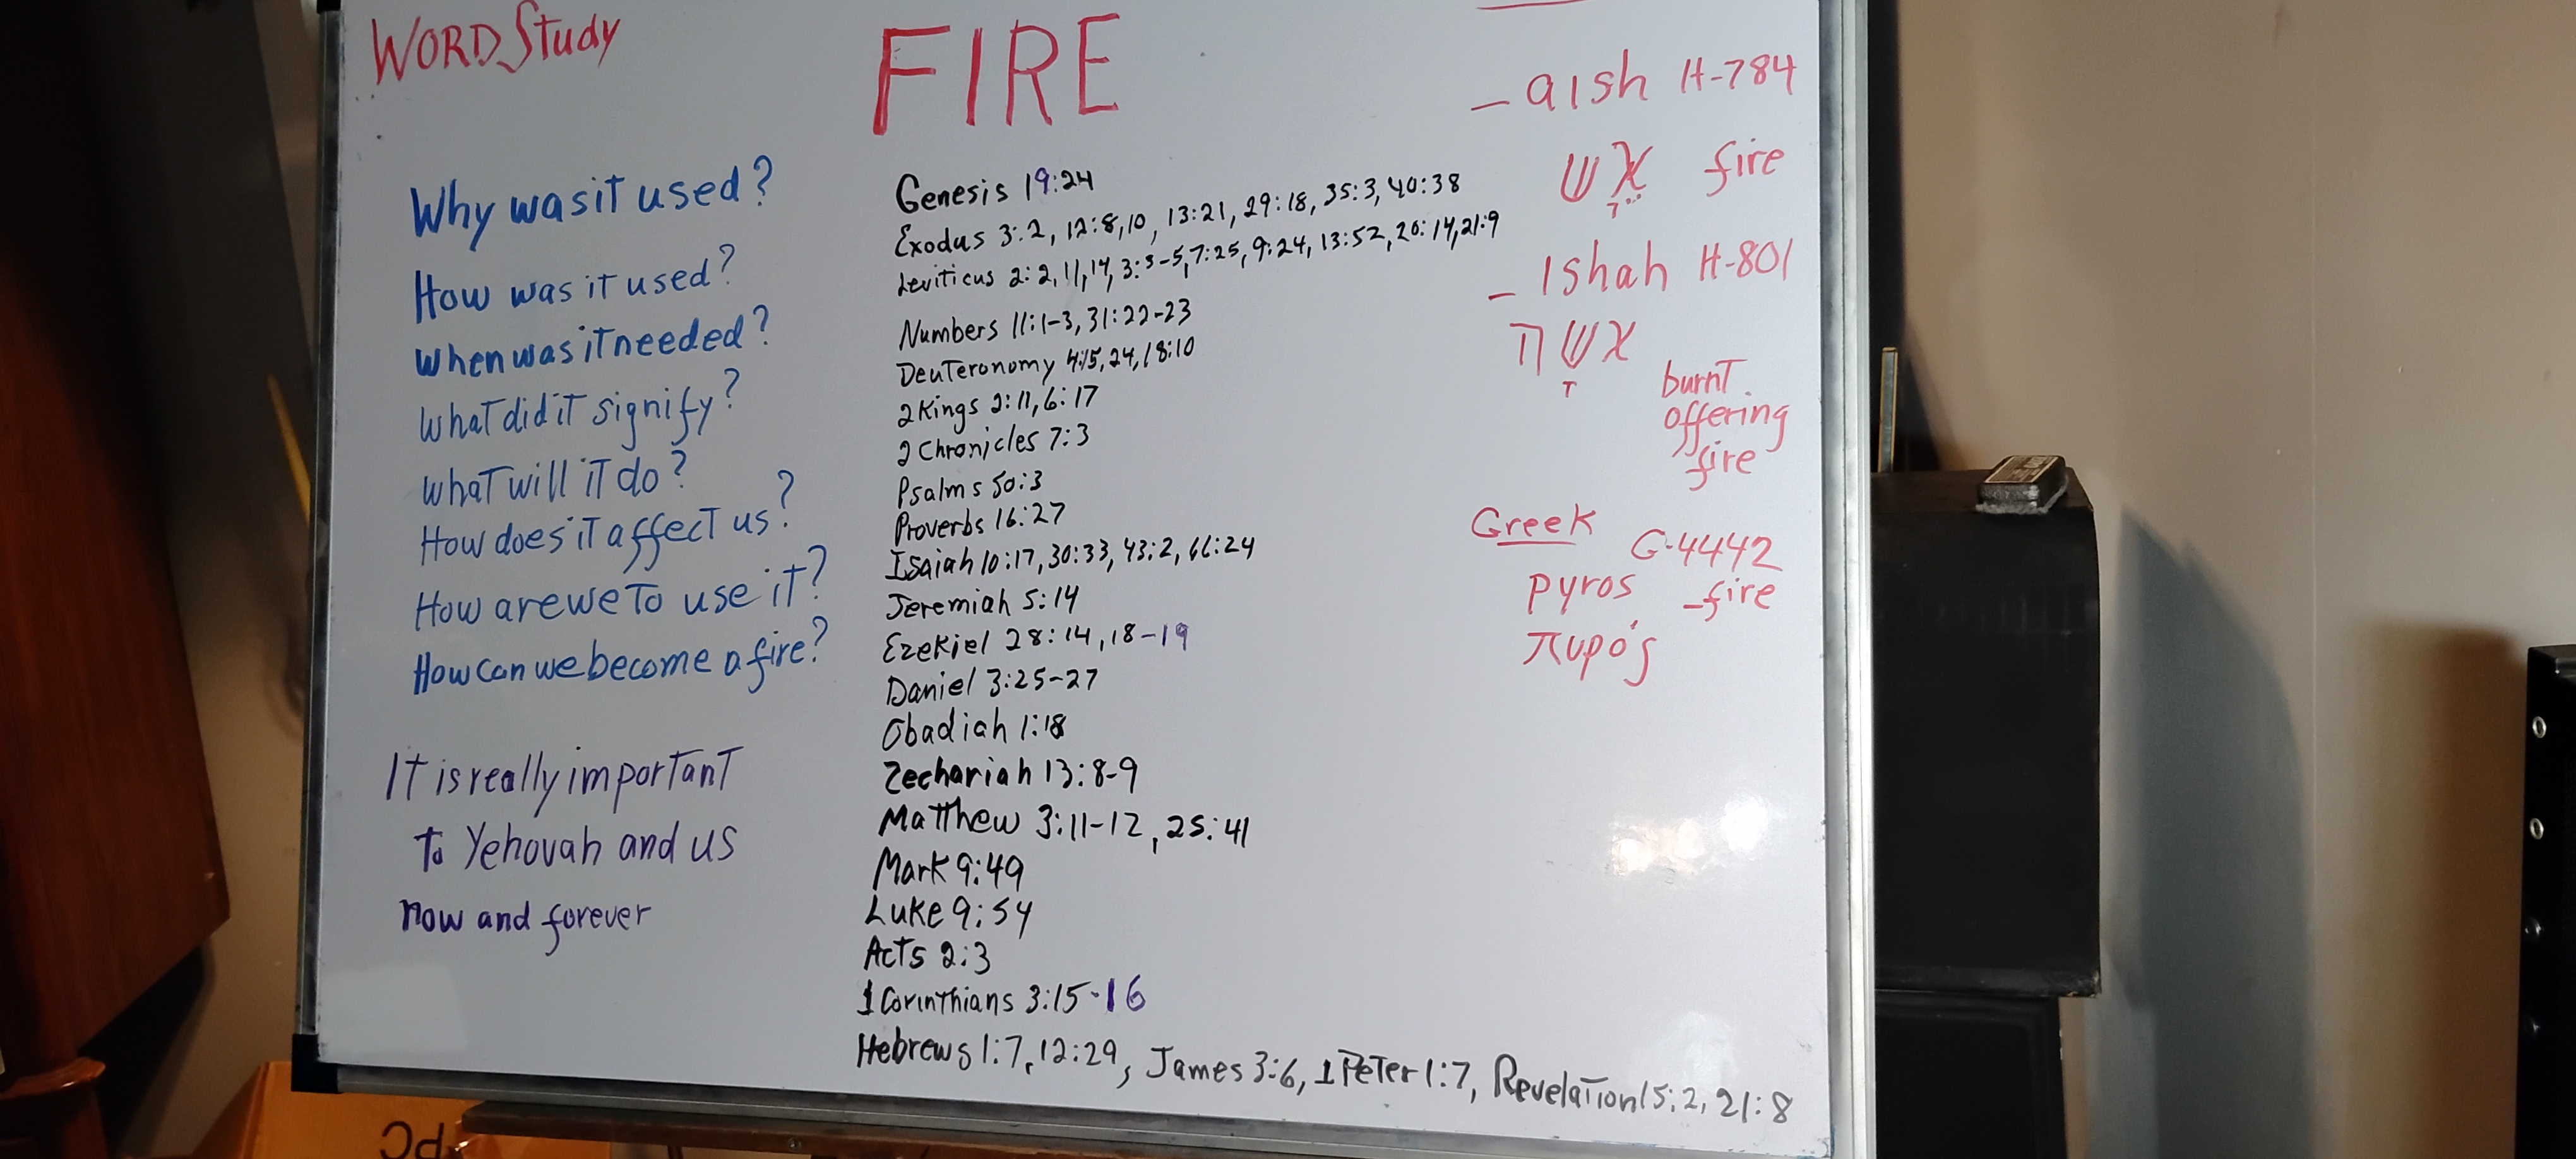 WORD Study
FIRE
Why was it used?
How was it used?
When was it needed?
What did it signify?
What will it do?
How does it affect us?
How are we to use it?
How can we become a fire?
It is really important
to Yehovah and us
now and forever
Genesis 19:24
Exodus 3:2, 12:8,10, 13:21, 29:18, 35:3, 40:38
Leviticus 2:2,11,14, 3:3-5, 7:25, 9:24, 13:52, 20:14, 21:9
Numbers 11:1-3, 31:22-23
Deuteronomy 4:15,24, 18:10
2 Kings 2:11, 6:17
2 Chronicles 7:3
Psalms 50:3
Proverbs 16:27
Isaiah 10:17, 30:33, 43:2, 66:24
Jeremiah 5:14
Ezekiel 28:14, 18-19
Daniel 3:25-27
Obadiah 1:18
Zechariah 13:8-9
Matthew 3:11-12, 25:41
Mark 9:49
Luke 9:54
Acts 2:3
1 Corinthians 3:15-16
Hebrews 1:7, 12:29, James 3:6, 1 Peter 1:7, Revelation 15:2, 21:8
- aish H-784
אש fire
- Ishah H-801
אשָה
burnt
offering
fire
Greek
G-4442
pyros -fire
πυρός
PC